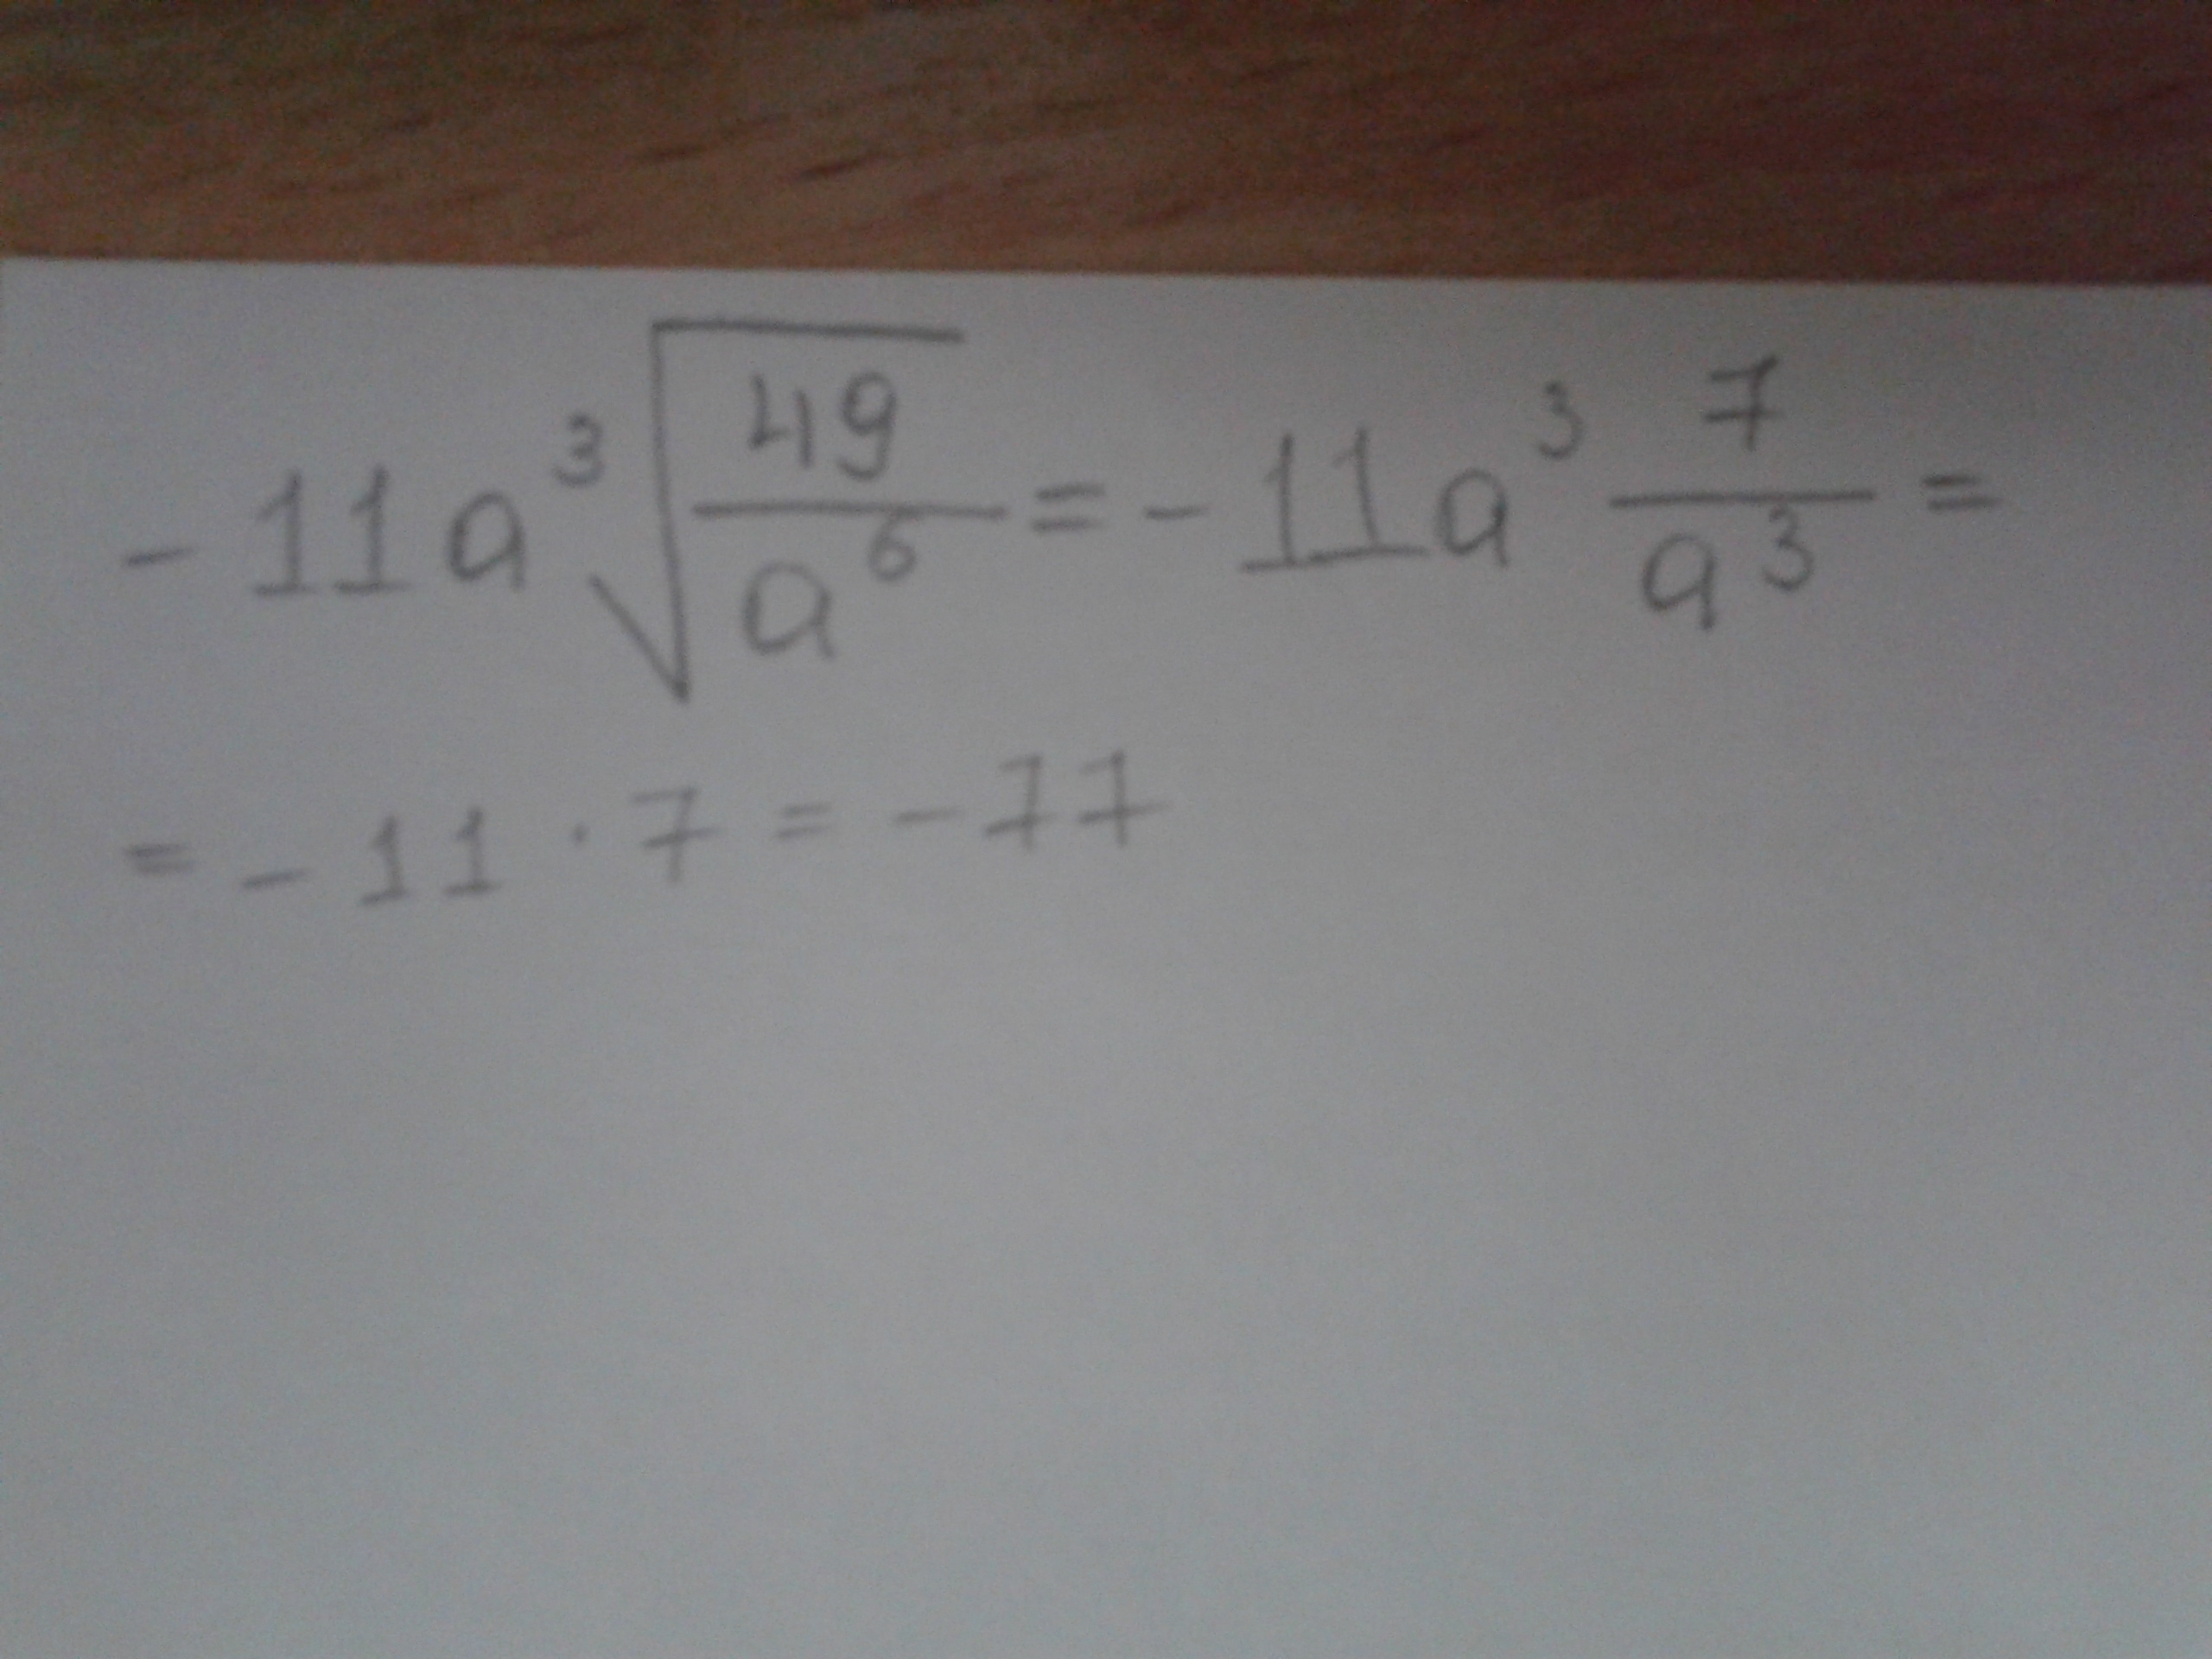 -11a³√(49/a⁶) = -11a³ 7/a³ =
= -11 · 7 = -77